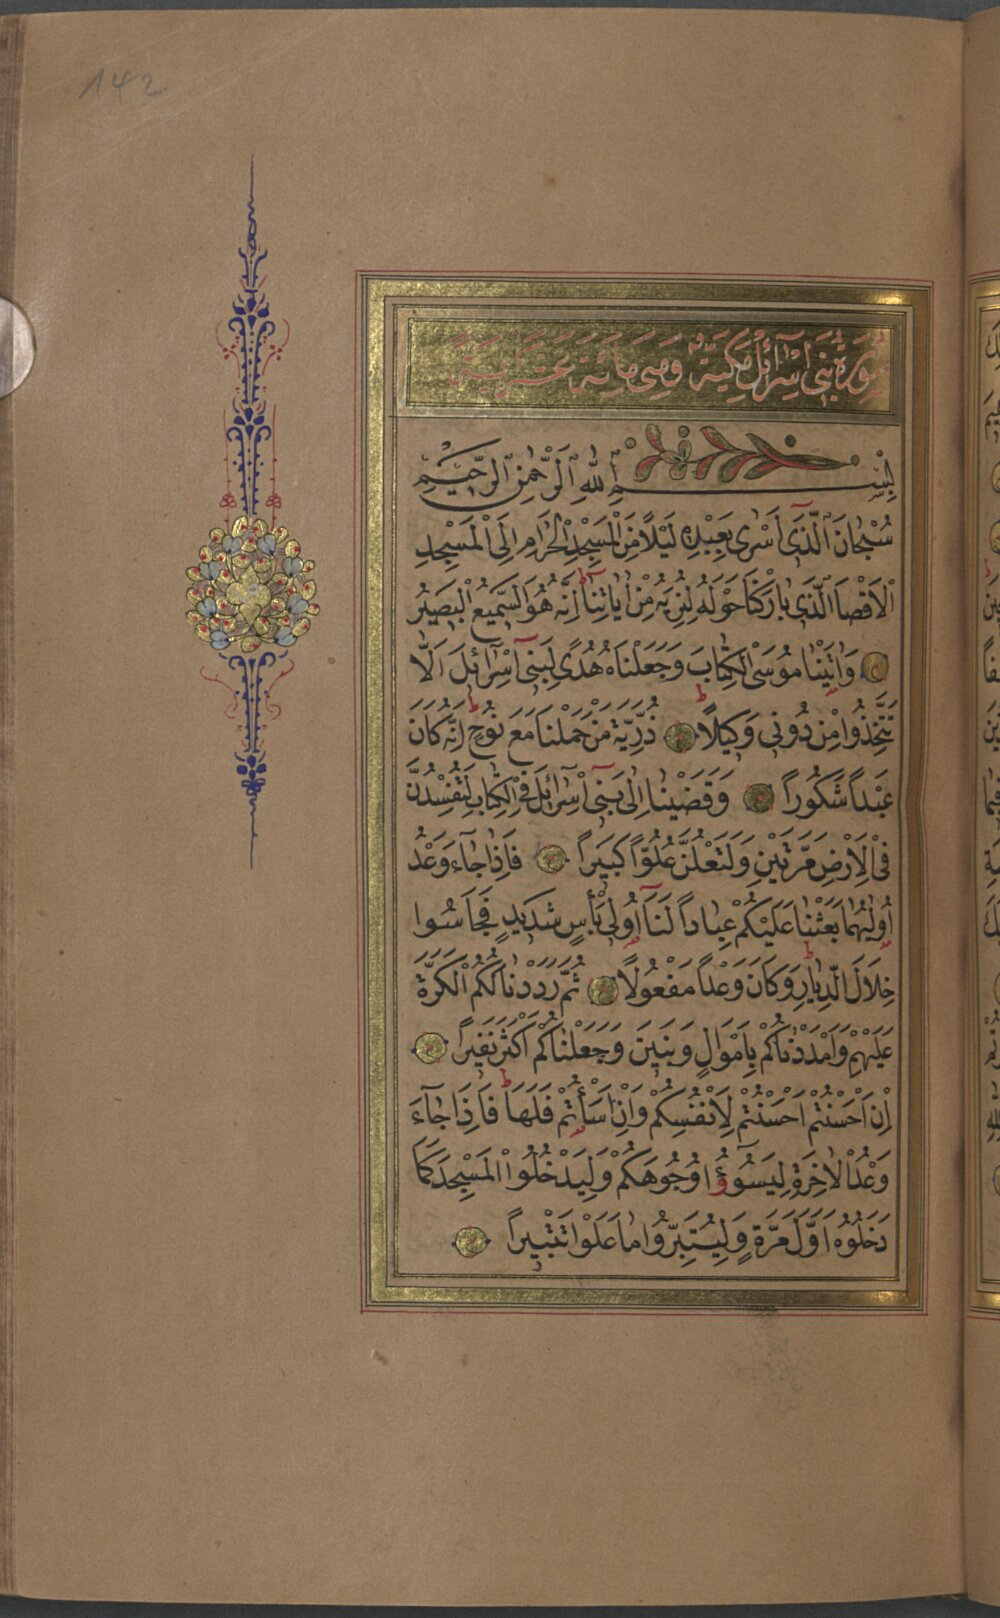 142
سُورَةُ بَنِى إِسْرَآئِلَ مَكِّيَّةٌ وَهِىَ مِائَة
بِسْمِ ٱللهِ ٱلرَّحْمٰنِ ٱلرَّحِيمِ
سُبْحَانَ ٱلَّذِى اَسْرٰى بِعَبْدِهِ لَيْلًا مِنَ الْمَسْجِدِ الْحَرَامِ اِلَى الْمَسْجِدِ
الْاَقْصَا الَّذِى بَارَكْنَا حَوْلَهُ لِنُرِيَهُ مِنْ اٰيَاتِنَا اِنَّهُ هُوَ السَّمِيعُ الْبَصِيرُ
وَاٰتَيْنَا مُوسَى الْكِتَابَ وَجَعَلْنَاهُ هُدًى لِبَنِى اِسْرَآئِلَ اَلَّا
تَتَّخِذُوا مِنْ دُونِى وَكِيلًا ذُرِّيَّةَ مَنْ حَمَلْنَا مَعَ نُوحٍ اِنَّهُ كَانَ
عَبْدًا شَكُورًا وَقَضَيْنَا اِلٰى بَنِى اِسْرَآئِلَ فِى الْكِتَابِ لَتُفْسِدُنَّ
فِى الْاَرْضِ مَرَّتَيْنِ وَلَتَعْلُنَّ عُلُوًّا كَبِيرًا فَاِذَا جَآءَ وَعْدُ
اُولٰيهُمَا بَعَثْنَا عَلَيْكُمْ عِبَادًا لَنَا اُولِى بَأْسٍ شَدِيدٍ فَجَاسُوا
خِلَالَ الدِّيَارِ وَكَانَ وَعْدًا مَفْعُولًا ثُمَّ رَدَدْنَا لَكُمُ الْكَرَّةَ
عَلَيْهِمْ وَاَمْدَدْنَاكُمْ بِاَمْوَالٍ وَبَنِينَ وَجَعَلْنَاكُمْ اَكْثَرَ نَفِيرًا
اِنْ اَحْسَنْتُمْ اَحْسَنْتُمْ لِاَنْفُسِكُمْ وَاِنْ اَسَأْتُمْ فَلَهَا فَاِذَا جَآءَ
وَعْدُ الْاٰخِرَةِ لِيَسُوؤُا وُجُوهَكُمْ وَلِيَدْخُلُوا الْمَسْجِدَ كَمَا
دَخَلُوهُ اَوَّلَ مَرَّةٍ وَلِيُتَبِّرُوا مَا عَلَوْا تَتْبِيرًا